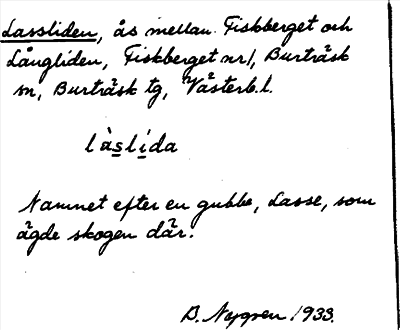 Lassliden, ås mellan Fiskberget och
Långliden, Fiskberget nr 1, Burträsk
sn, Burträsk tg, Västerb. l.
làslida
Namnet efter en gubbe, Lasse, som
ägde skogen där.
B. Nygren 1933.